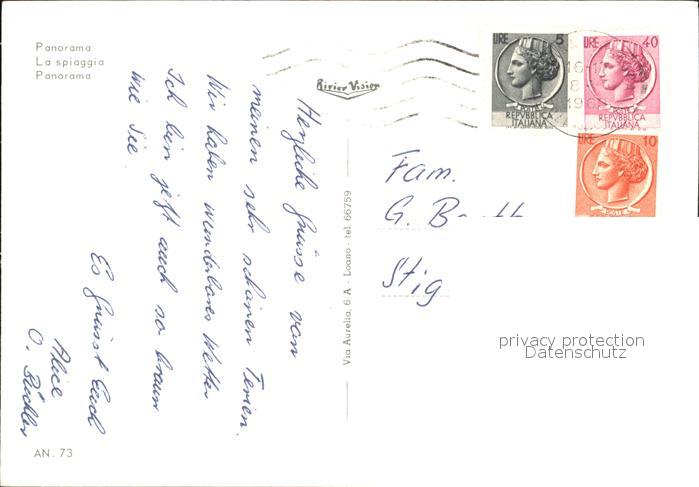 Panorama
La spiaggia
Panorama
Rivier Visier
Herzliche Grüsse von
meinen sehr schönen Ferien.
Wir haben wunderbares Wetter
Ich bin jetzt auch so braun
wie Sie.
Es grüsst Euch
Alice
O. Büchler
AN. 73
Via Aurelia, 6 A - Loano - tel. 66759
LIRE 5
POSTE
REPVBBLICA
ITALIANA
LIRE 40
POSTE
REPVBBLICA
ITALIANA
LIRE 10
POSTE
Fam.
G. B
Stig
privacy protection
Datenschutz